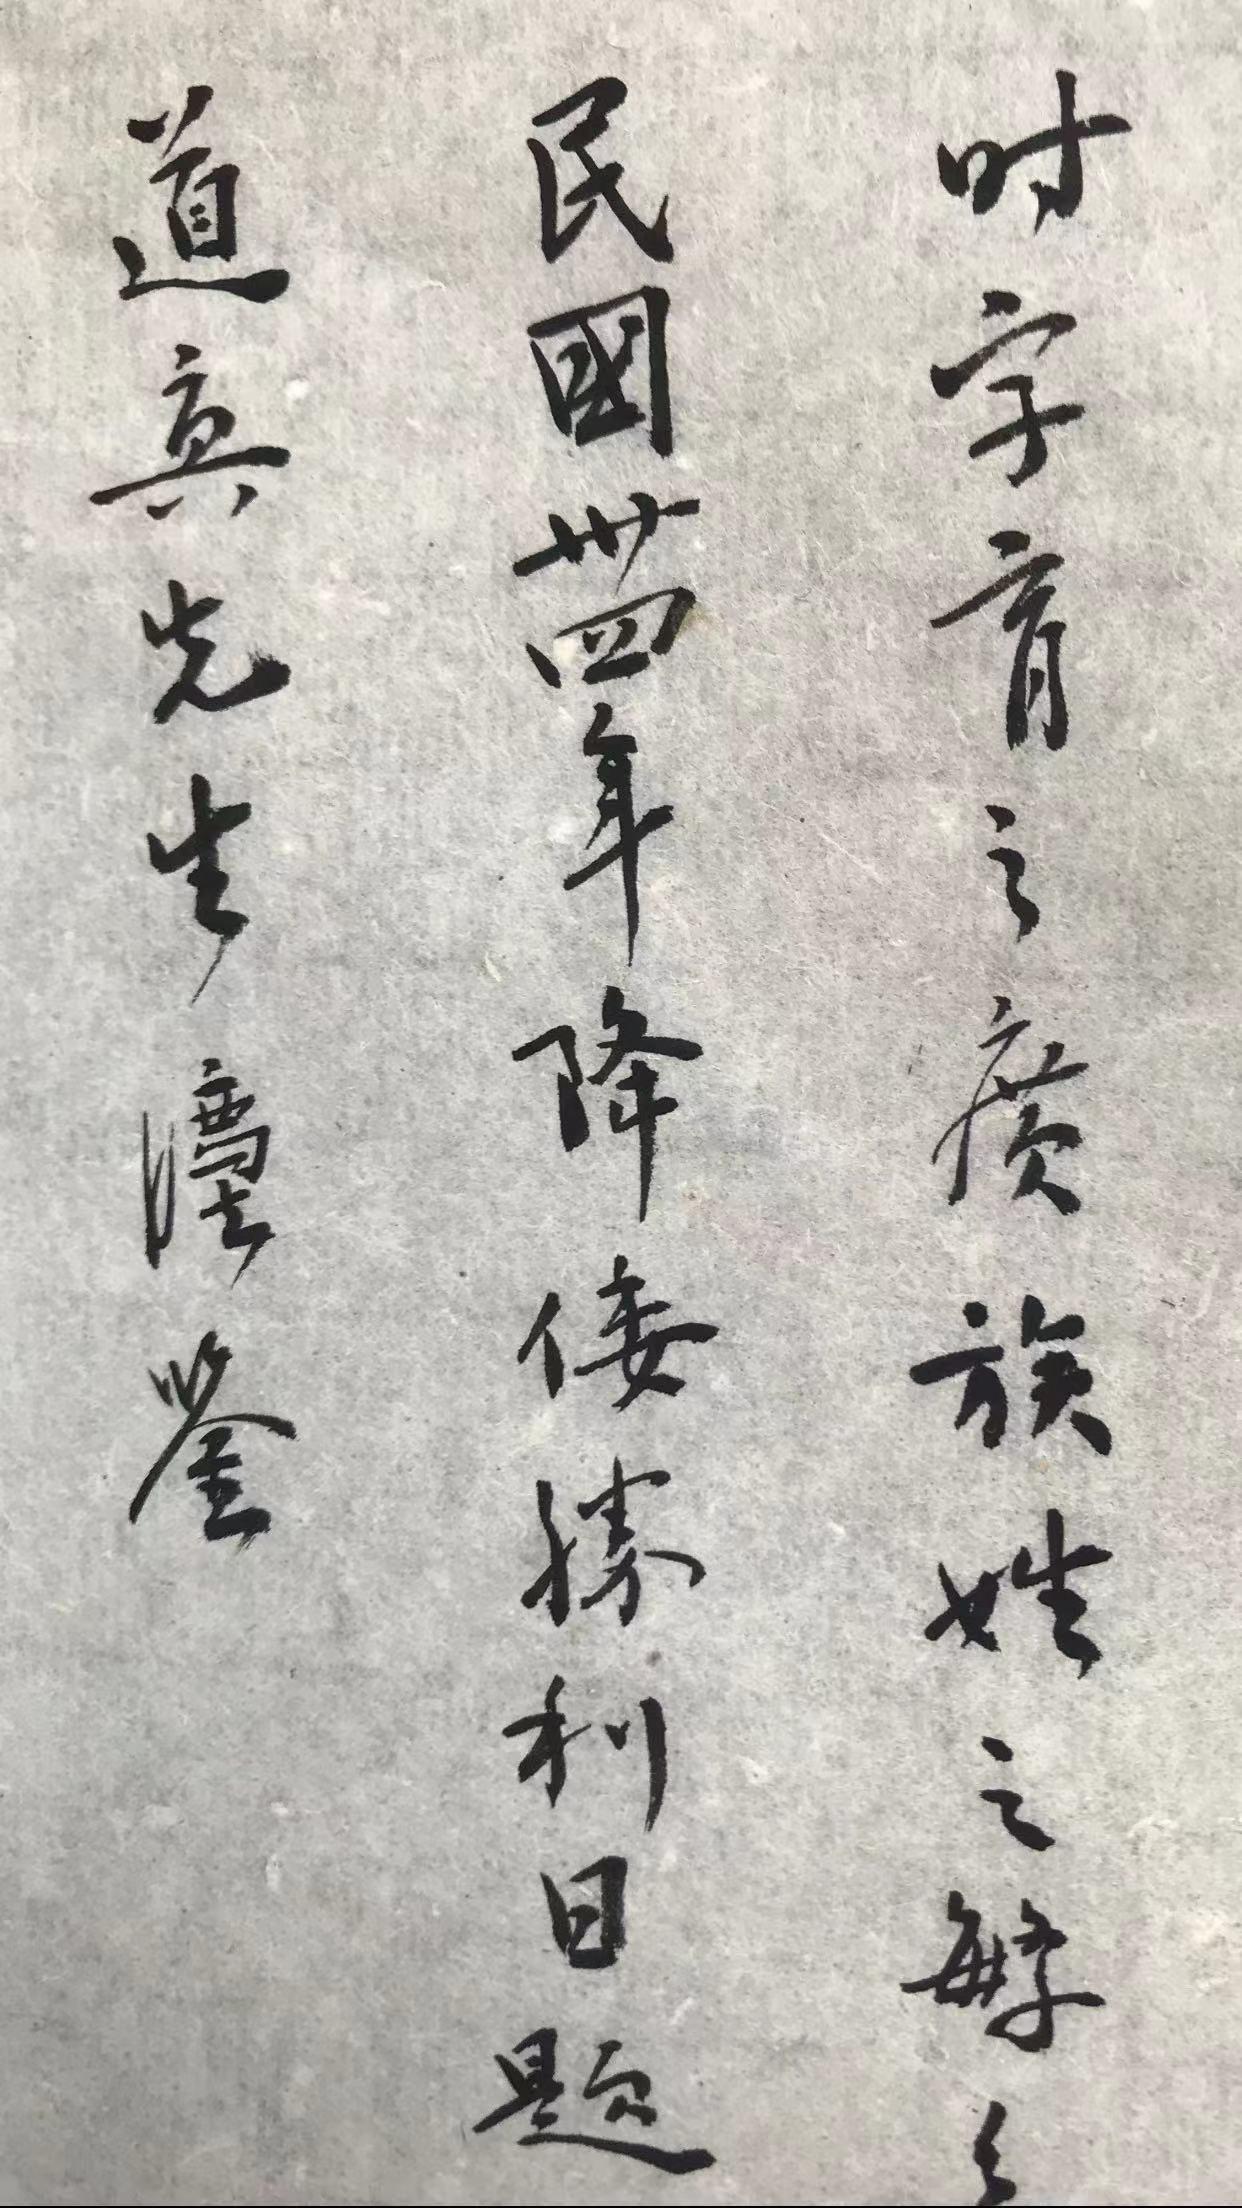 时字育之廣族姓之繁
民國卅四年降倭勝利日題
道真先生鉴